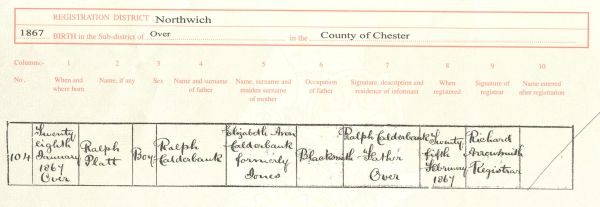 REGISTRATION DISTRICT Northwich
1867 BIRTH in the Sub-district of Over in the County of Chester
Columns:- 1 2 3 4 5 6 7 8 9 10
No. When and where born Name, if any Sex Name and surname of father Name, surname and maiden surname of mother Occupation of father Signature, description and residence of informant When registered Signature of registrar Name entered after registration
104
Twenty
eighth
January
1867
Over
Ralph
Platt
Boy
Ralph
Calderbank
Elizabeth Ann
Calderbank
formerly
Jones
Blacksmith
Ralph Calderbank
Father
Over
Twenty
fifth
February
1867
Richard
Arrowsmith
Registrar